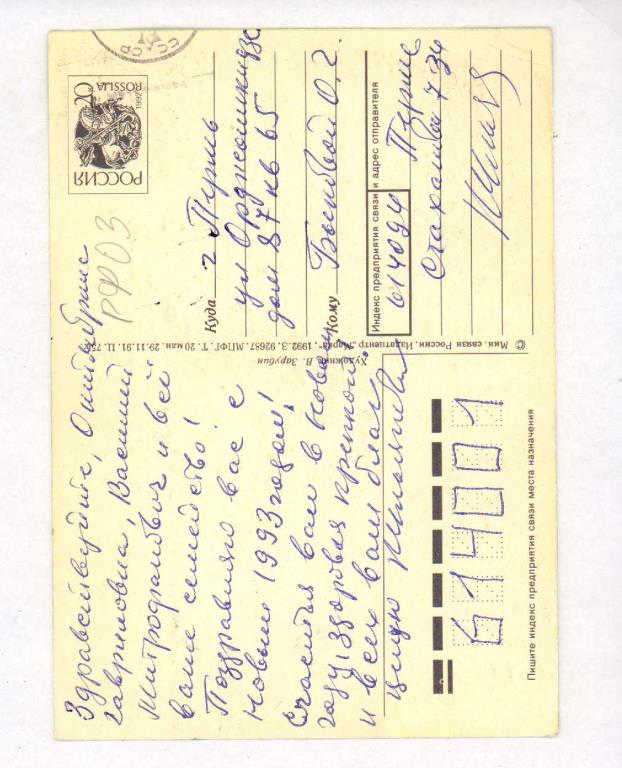 Здравствуйте,
Гавриловна, Василий
Митрофанович и всё
ваше семейство!
Поздравляю вас с
Новым 1993 годом!
Счастья Вам в Новом
году, здоровья крепкого
и всех Вам благ
РФ03
СССР
20к
ROSSIJA
1992
РОССИЯ
Куда г Пермь
ул Орджоникидзе
дом 87 кв 65
Кому О. Г.
Индекс предприятия связи и адрес отправителя
614094 Пермь
7 34
© Мин. связи России. Издатцентр "Марка", 1992. З. 92687. МПФГ. Т. 20 млн. 29.11.91. Ц. 75к.
Художник В. Зарубин
614001
Пишите индекс предприятия связи места назначения